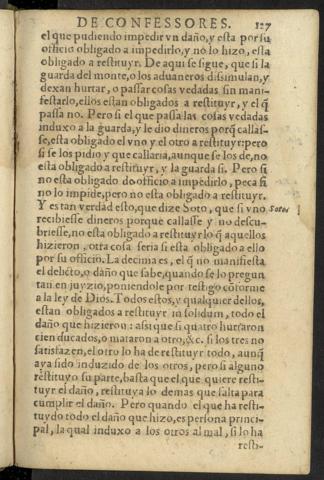 DE CONFESSORES. 127
el que pudiendo impedir vn daño, y esta por su
officio obligado a impedirlo, y no lo hizo, esta
obligado a restituyr. De aqui se sigue, que si la
guarda del monte, o los aduaneros disimulan, y
dexan hurtar, o passar cosas vedadas sin mani-
festarlo, ellos estan obligados a restituyr, y el q̃
passa no. Pero si el que passa las cosas vedadas
induxo a la guarda, y le dio dineros porq̃ callas-
se, esta obligado el vno y el otro a restituyr: pero
si se los pidio y que callaria, aunque se los de, no
esta obligado a restituyr, y la guarda si. Pero si
no esta obligado de officio a impedirlo, peca si
no lo impide, pero no esta obligado a restituyr.
Y es tan verdad esto, que dize Soto, que si vno
Soto
recibiesse dineros porque callasse y no descu-
briesse, no esta obligado a restituyr lo q̃ aquellos
hizieron, otra cosa seria si esta obligado a ello
por su officio. La decima es, el q̃ no manifiesta
el delicto, o daño que sabe, quando se lo pregun
tan en juyzio, poniendole por testigo cõforme
a la ley de Dios. Todos estos, y qualquier dellos,
estan obligados a restituyr in solidum, todo el
daño que hizieron: assi que si quatro hurtaron
cien ducados, o mataron a otro, &c. si los tres no
satisfazen, el otro lo ha de restituyr todo, aunq̃
aya sido induzido de los otros, pero si alguno
rẽstituyo su parte, basta que el que quiere resti-
tuyr el daño, restituya lo demas que falta para
cumplir el daño. Pero quando el que ha resti-
tuydo todo el daño que hizo, es persona princi-
pal, la qual induxo a los otros al mal, si lo ha
resti-